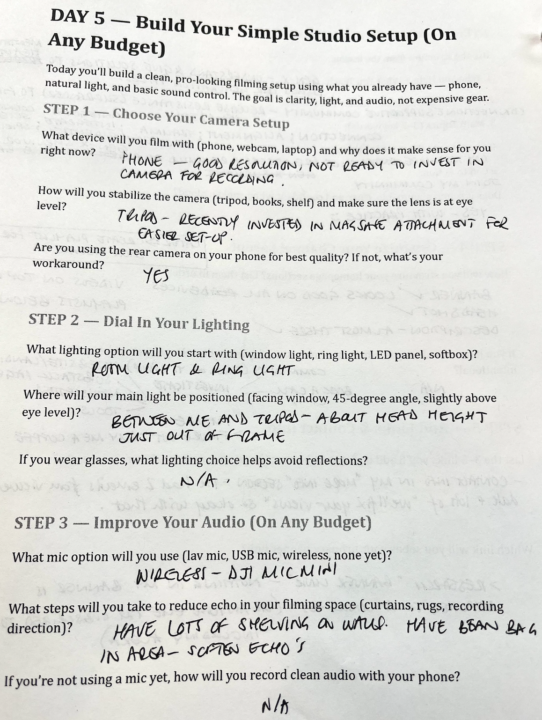 DAY 5 — Build Your Simple Studio Setup (On
Any Budget)
Today you'll build a clean, pro-looking filming setup using what you already have — phone,
natural light, and basic sound control. The goal is clarity, light, and audio, not expensive gear.
STEP 1 — Choose Your Camera Setup
What device will you film with (phone, webcam, laptop) and why does it make sense for you
right now?
PHONE — GOOD RESOLUTION, NOT READY TO INVEST IN
CAMERA FOR RECORDING.
How will you stabilize the camera (tripod, books, shelf) and make sure the lens is at eye
level?
TRIPOD - RECENTLY INVESTED IN MAGSAFE ATTACHMENT FOR
EASIER SET-UP.
Are you using the rear camera on your phone for best quality? If not, what's your
workaround?
YES
STEP 2 — Dial In Your Lighting
What lighting option will you start with (window light, ring light, LED panel, softbox)?
ROOM LIGHT & RING LIGHT
Where will your main light be positioned (facing window, 45-degree angle, slightly above
eye level)?
BETWEEN ME AND TRIPOD - ABOUT HEAD HEIGHT
JUST OUT OF FRAME
If you wear glasses, what lighting choice helps avoid reflections?
N/A.
STEP 3 — Improve Your Audio (On Any Budget)
What mic option will you use (lav mic, USB mic, wireless, none yet)?
WIRELESS - DJI MIC MINI
What steps will you take to reduce echo in your filming space (curtains, rugs, recording
direction)?
HAVE LOTS OF SHELVING ON WALLS. HAVE BEAN BAG
IN AREA - SOFTEN ECHO'S
If you're not using a mic yet, how will you record clean audio with your phone?
N/A